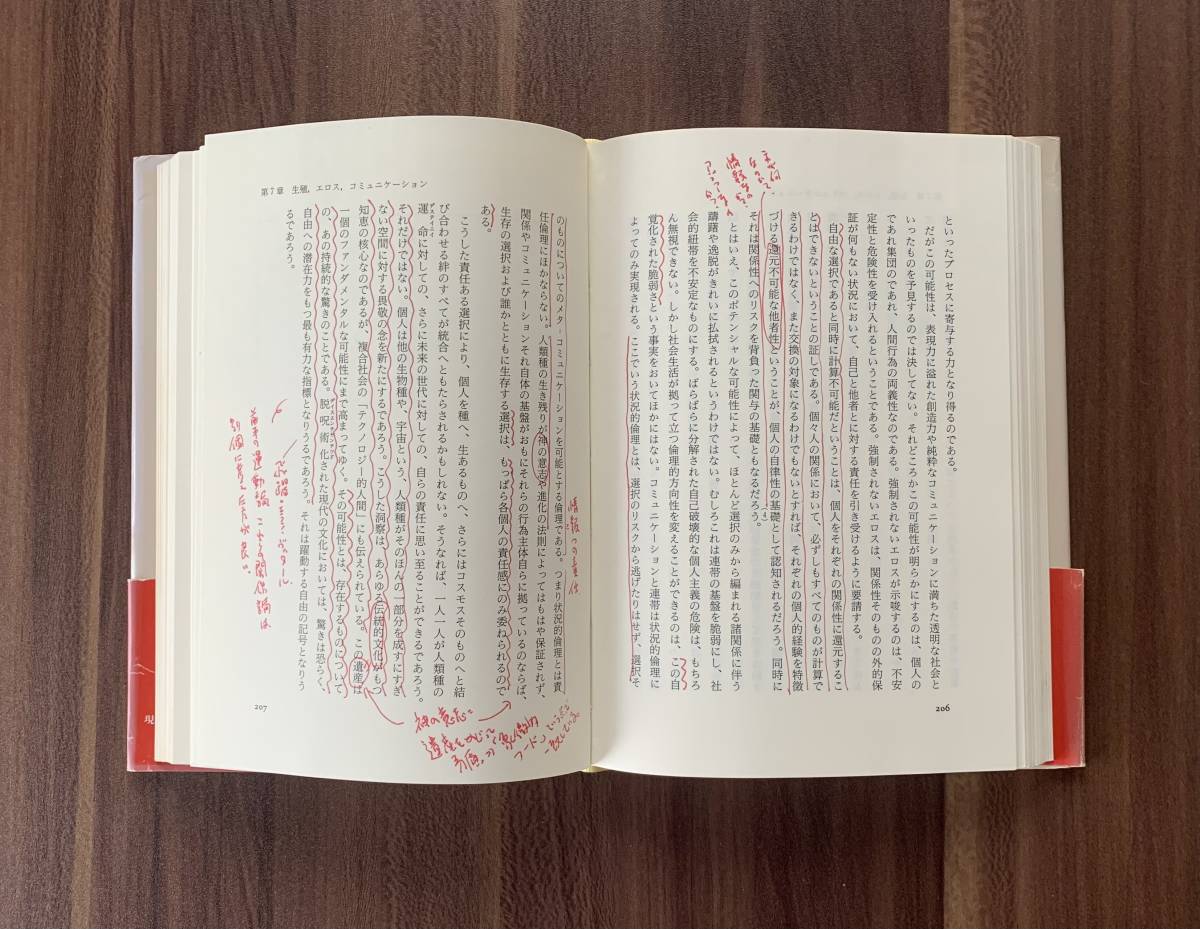 といったプロセスに寄与する力となり得るのである。
だがこの可能性は、表現力に溢れた創造力や純粋なコミュニケーションに満ちた透明な社会と
いったものを予見するのでは決してない。それどころかこの可能性が明らかにするのは、個人の
であれ集団のであれ、人間行為の両義性なのである。強制されないエロスが示唆するのは、不安
定性と危険性を受け入れるということである。強制されないエロスは、関係性そのものの外的保
証が何もない状況において、自己と他者とに対する責任を引き受けるように要請する。
自由な選択であると同時に計算不可能だということは、個人をそれぞれの関係性に還元するこ
とはできないということの証しである。個々人の関係において、必ずしもすべてのものが計算で
きるわけではなく、また交換の対象になるわけでもないとすれば、それぞれの個人的経験を特徴
づける還元不可能な他者性ということが、個人の自律性の基礎として認知されるだろう。同時に
それは関係性へのリスクを背負った関与の基礎ともなるだろう。(4)
とはいえ、このポテンシャルな可能性によって、ほとんど選択のみから編まれる諸関係に伴う
躊躇や逸脱がきれいに払拭されるというわけではない。むしろこれは連帯の基盤を脆弱にし、社
会的紐帯を不安定なものにする。ばらばらに分解された自己破壊的な個人主義の危険は、もちろ
ん無視できない。しかし社会生活が拠って立つ倫理的方向性を変えることができるのは、この自
覚化された脆弱さという事実をおいてほかにはない。コミュニケーションと連帯は状況的倫理に
よってのみ実現される。ここでいう状況的倫理とは、選択のリスクから逃げたりはせず、選択そ
206
第7章 生殖，エロス，コミュニケーション
のものについてのメタ‐コミュニケーションを可能とする倫理である。つまり状況的倫理とは責
任倫理にほかならない。人類種の生き残りが神の意志や進化の法則によってはもはや保証されず、
関係やコミュニケーションそれ自体の基盤がおもにそれらの行為主体自らに拠っているのならば、
生存の選択および誰かとともに生存する選択は、もっぱら各個人の責任感にのみ委ねられるので
ある。
こうした責任ある選択により、個人を種へ、生あるものへ、さらにはコスモスそのものへと結
び合わせる絆のすべてが統合へともたらされるかもしれない。そうなれば、一人一人が人類種の
運命に対しての、さらに未来の世代に対しての、自らの責任に思い至ることができるであろう。
それだけではない。個人は他の生物種や、宇宙という、人類種がそのほんの一部分を成すにすぎ
ない空間に対する畏敬の念を新たにするであろう。こうした洞察は、あらゆる伝統的文化がもつ
知恵の核心なのであるが、複合社会の「テクノロジー的人間」にも伝えられている。この遺産は
一個のファンダメンタルな可能性にまで高まってゆく。その可能性とは、存在するものについて
の、あの持続的な驚きのことである。脱呪術化された現代の文化においては、驚きは恐らく、
自由への潜在力をもつ最も有力な指標となりうるであろう。それは躍動する自由の記号となりう
るであろう。
207
神の意志に
遺産を
現